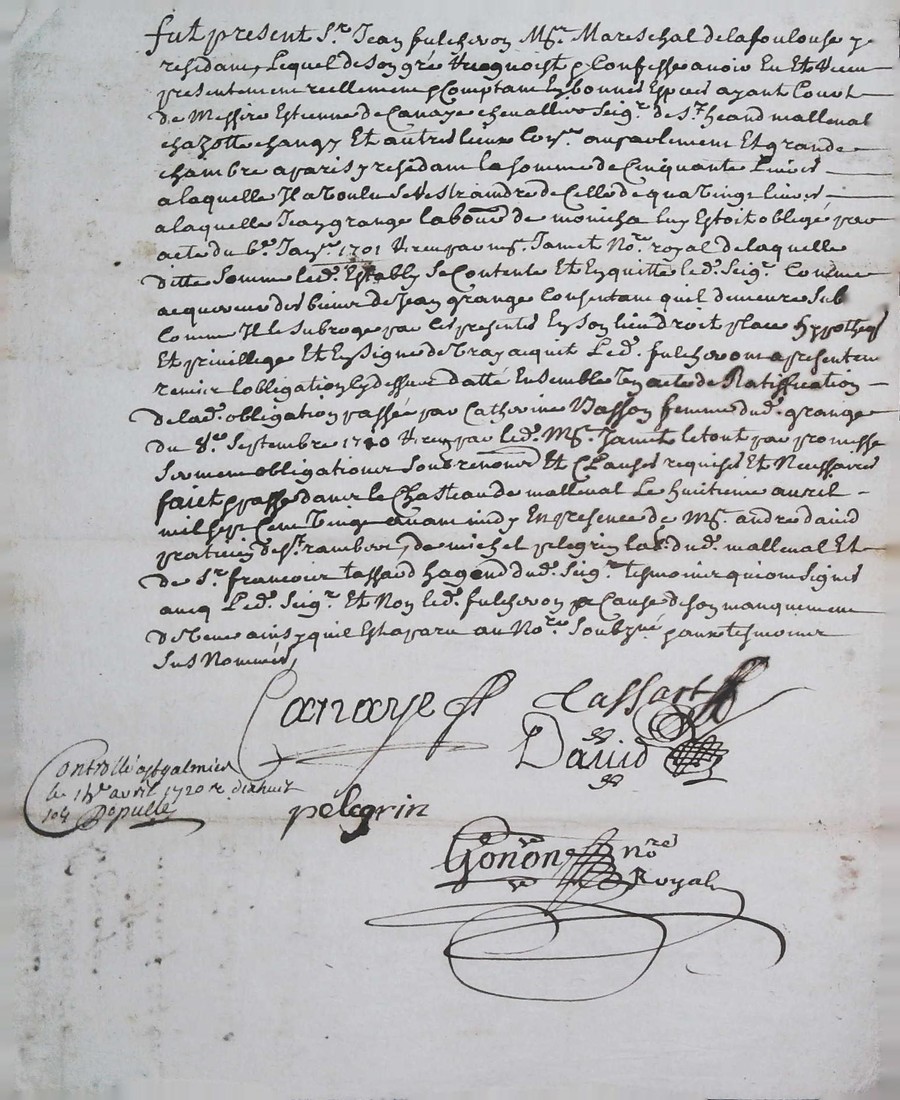 fut present Sr. Jean fulchiron Mr. Mareschal de la foulouse y
residant, Lequel de son gré et recognoist et Confesse avoir Eu Et Receu
presentement reellement et Comptant En bonnes Especes ayant Court
de Messire Estienne de Canaye chevallier Seigr. de St. heand malleval
chazotte changy Et autres lieux Consr. au parlement Et grande
chambre a paris y residant la somme de Cinquante Livres
a laquelle Il a Voulu se restraindre de Celle de quatvingt livres
a laquelle Jean grange laboureur de monicha luy Estoit obligé par
acte du 6e. Janvr. 1701 receu par me. Jamet Nore. royal de laquelle
ditte Somme led. Estably Se Contente Et En quitte led. Seigr. Comme
acquereur des biens de Jean grange Consentant quil demeure Sub
Comme Il le Subroge par Ces presentes En Son lieu droit place hypotheq
Et privillege Et En Signe de Vray acquit Led. fulchiron a presentem
remis Lobligation Cy dessus datté Ensemble Un acte de Ratiffication
de lad. obligation passée par Catherine Vasson femme dud. grange
du 8e. Septembre 1710 receu par led. Me. Jamet le tout par promesse
Serment obligations Soubs renons. Et Clauses requises Et Necessaires
faict et passé dans le Chasteau de malleval Le huitieme avril
mil sept Cent Vingt avant midy En presence de Me. andré david
praticien de St. rambert, de michel pelegrin labr. dud. malleval Et
de Sr. francois tassard dud. Seigr. tesmoins qui ont Signés
avecq Led. Seigr. Et Non led. fulchiron a Cause de son manquement
de Veue ainsy quil Est aparu au Nore. Soubzné et aux tesmoins
Sus Nommés,
Canaye Tassart
David
Controllé a St galmier
le 14e avril 1720 R. dixhuit
sols Depullé
pelegrin
Gonon nore
Royal